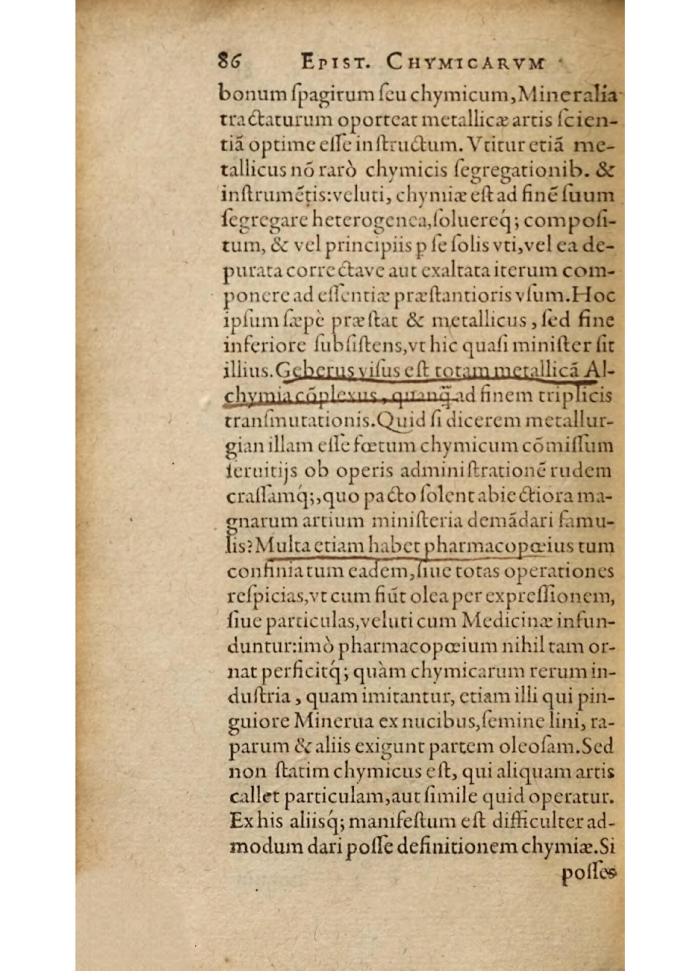 86 EPIST. CHYMICARVM
bonum ſpagirum ſeu chymicum, Mineralia
tractaturum oporteat metallicæ artis ſcien-
tiã optime eſſe inſtructum. Vtitur etiã me-
tallicus nõ rarò chymicis ſegregationib. &
inſtrumẽtis: veluti, chymiæ eſt ad finẽ ſuum
ſegregare heterogenea, ſoluereq́; compoſi-
tum, & vel principiis ꝑ ſe ſolis vti, vel ea de-
purata correctave aut exaltata iterum com-
ponere ad eſſentiæ præſtantioris vſum. Hoc
ipſum ſæpè præſtat & metallicus, ſed fine
inferiore ſubſiſtens, vt hic quaſi miniſter ſit
illius. Geberus viſus eſt totam metallicã Al-
chymia cõplexus, quanq̃ ad finem triplicis
tranſmutationis. Quid ſi dicerem metallur-
gian illam eſſe fœtum chymicum cõmiſſum
ſeruitijs ob operis adminiſtrationẽ rudem
craſſamq́;, quo pacto ſolent abiectiora ma-
gnarum artium miniſteria demãdari famu-
lis? Multa etiam habet pharmacopœius tum
confinia tum eadem, ſiue totas operationes
reſpicias, vt cum fiũt olea per expreſſionem,
ſiue particulas, veluti cum Medicinæ infun-
duntur: imò pharmacopœium nihil tam or-
nat perficitq́; quàm chymicarum rerum in-
duſtria, quam imitantur, etiam illi qui pin-
guiore Minerua ex nucibus, ſemine lini, ra-
parum & aliis exigunt partem oleoſam. Sed
non ſtatim chymicus eſt, qui aliquam artis
callet particulam, aut ſimile quid operatur.
Ex his aliisq́; manifeſtum eſt difficulter ad-
modum dari poſſe definitionem chymiæ. Si
poſſes